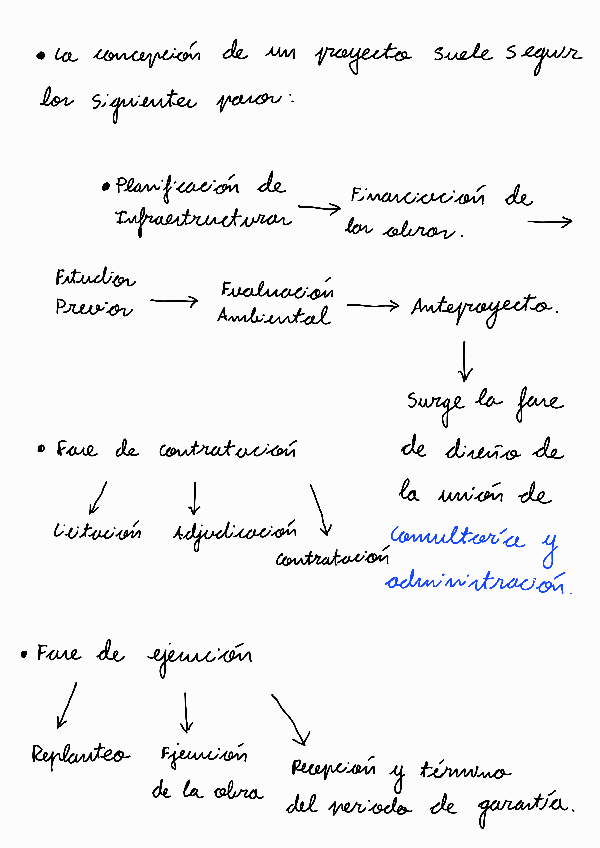 • La concepción de un proyecto suele seguir
los siguientes pasos:
• Planificación de
Infraestructuras
Financiación de
las obras.
Estudios
Previos
Evaluación
Ambiental
Anteproyecto.
Surge la fase
de diseño de
la unión de
Consultoría y
administración.
• Fase de contratación
Licitación
Adjudicación
Contratación
• Fase de ejecución
Replanteo
Ejecución
de la obra
Recepción y término
del periodo de garantía.